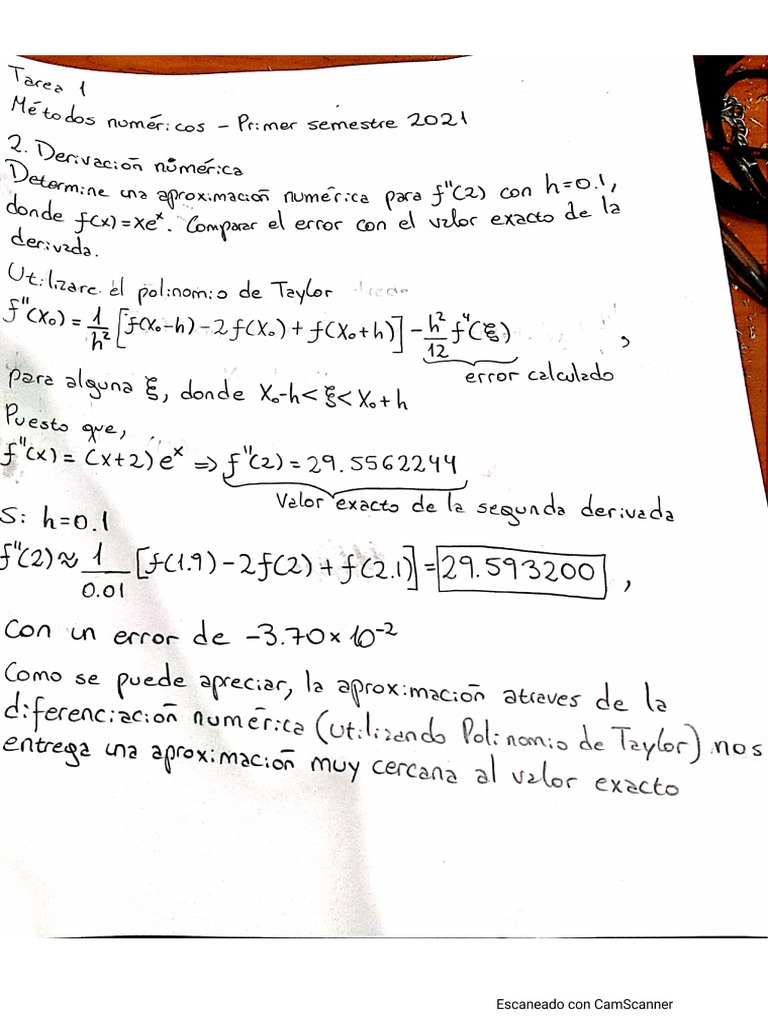 Tarea 1
Métodos numéricos – Primer semestre 2021
2. Derivación numérica
Determine una aproximación numérica para f''(2) con h=0.1,
donde f(x)=xeˣ. Comparar el error con el valor exacto de la
derivada.
Utilizare el polinomio de Taylor
f''(x₀) = 1/h² [f(x₀-h) - 2f(x₀) + f(x₀+h)] - h²/12 f⁴(ξ) ,
error calculado
para alguna ξ, donde x₀-h < ξ < x₀+h
Puesto que,
f''(x) = (x+2)eˣ ⇒ f''(2) = 29.5562244
Valor exacto de la segunda derivada
Si h=0.1
f''(2) ≈ 1/0.01 [f(1.9) - 2f(2) + f(2.1)] = 29.593200 ,
Con un error de -3.70×10⁻²
Como se puede apreciar, la aproximación atraves de la
diferenciación numérica (utilizando Polinomio de Taylor) nos
entrega una aproximación muy cercana al valor exacto
Escaneado con CamScanner